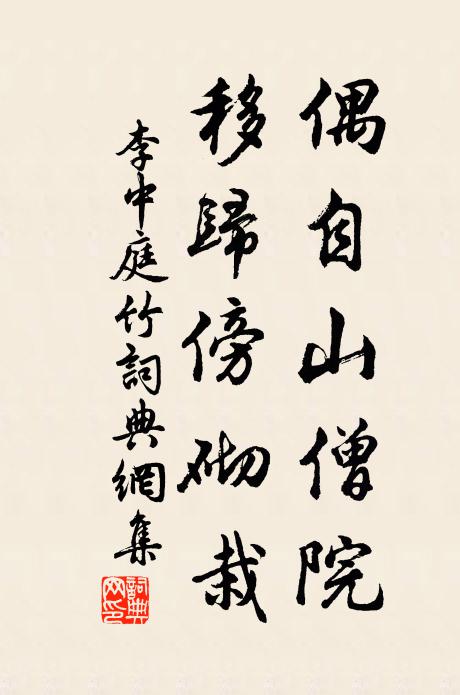 偶自山僧院
移歸傍砌栽
李中庭竹詞典網集
詞典
网印